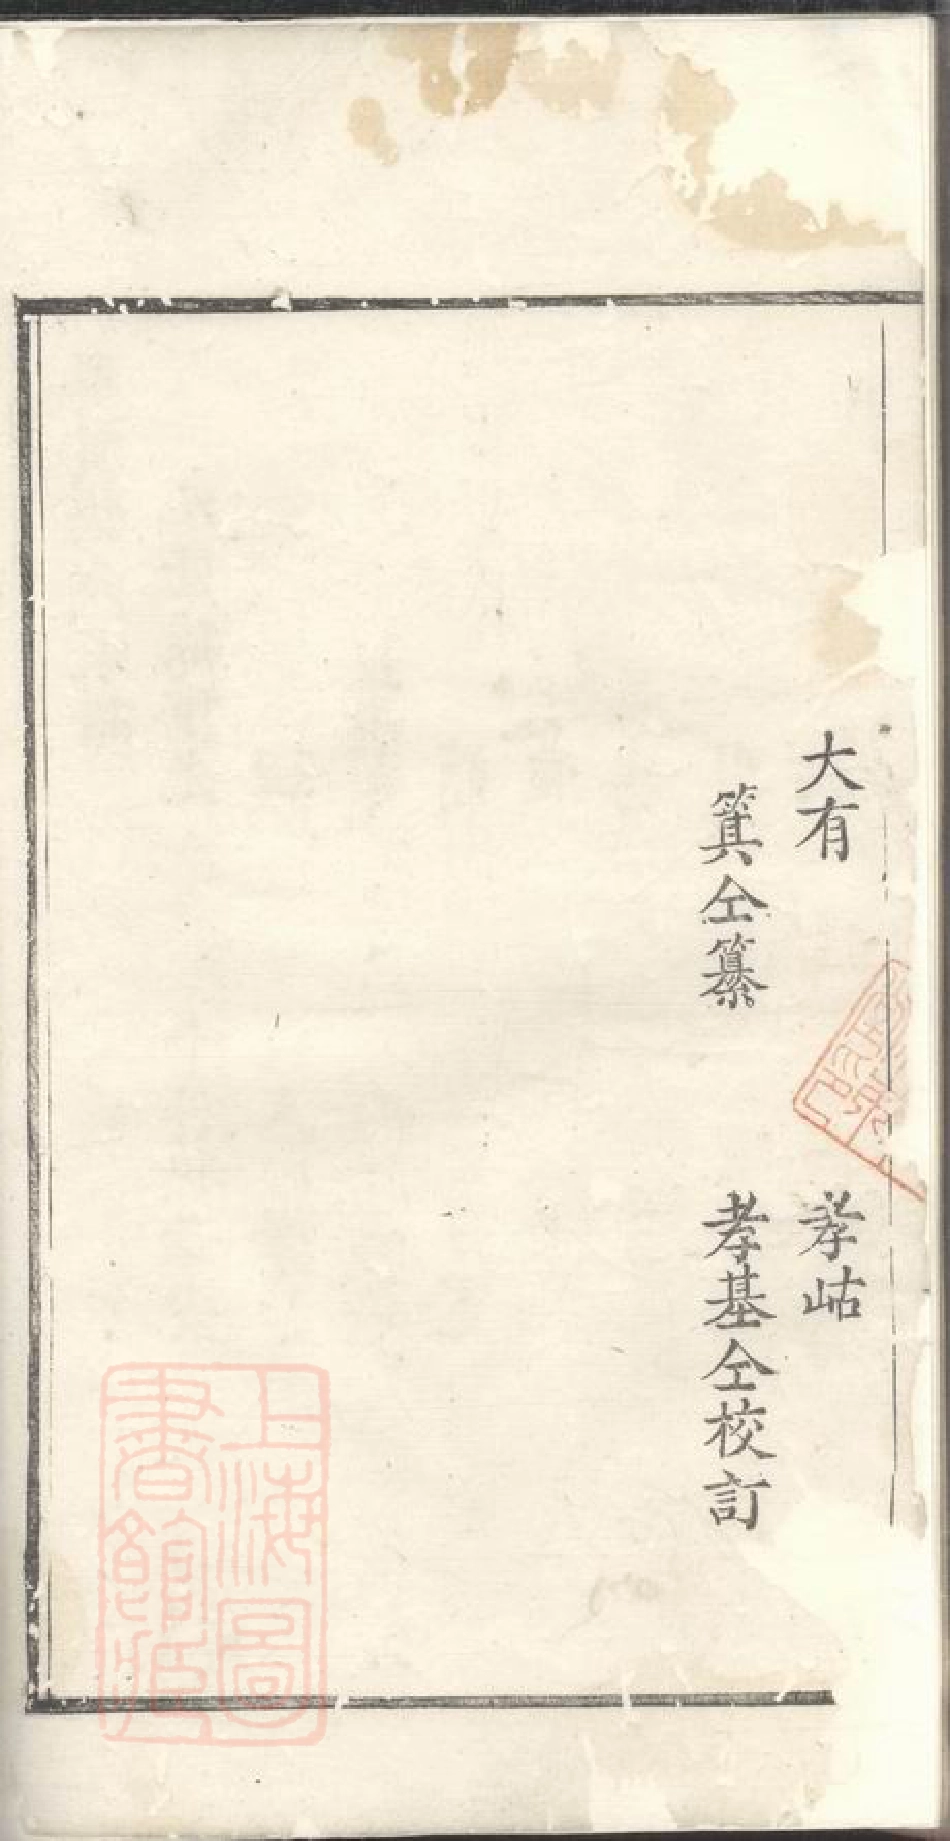 大有　孝岵
箕仝纂　孝基仝校訂
上海圖
書館藏